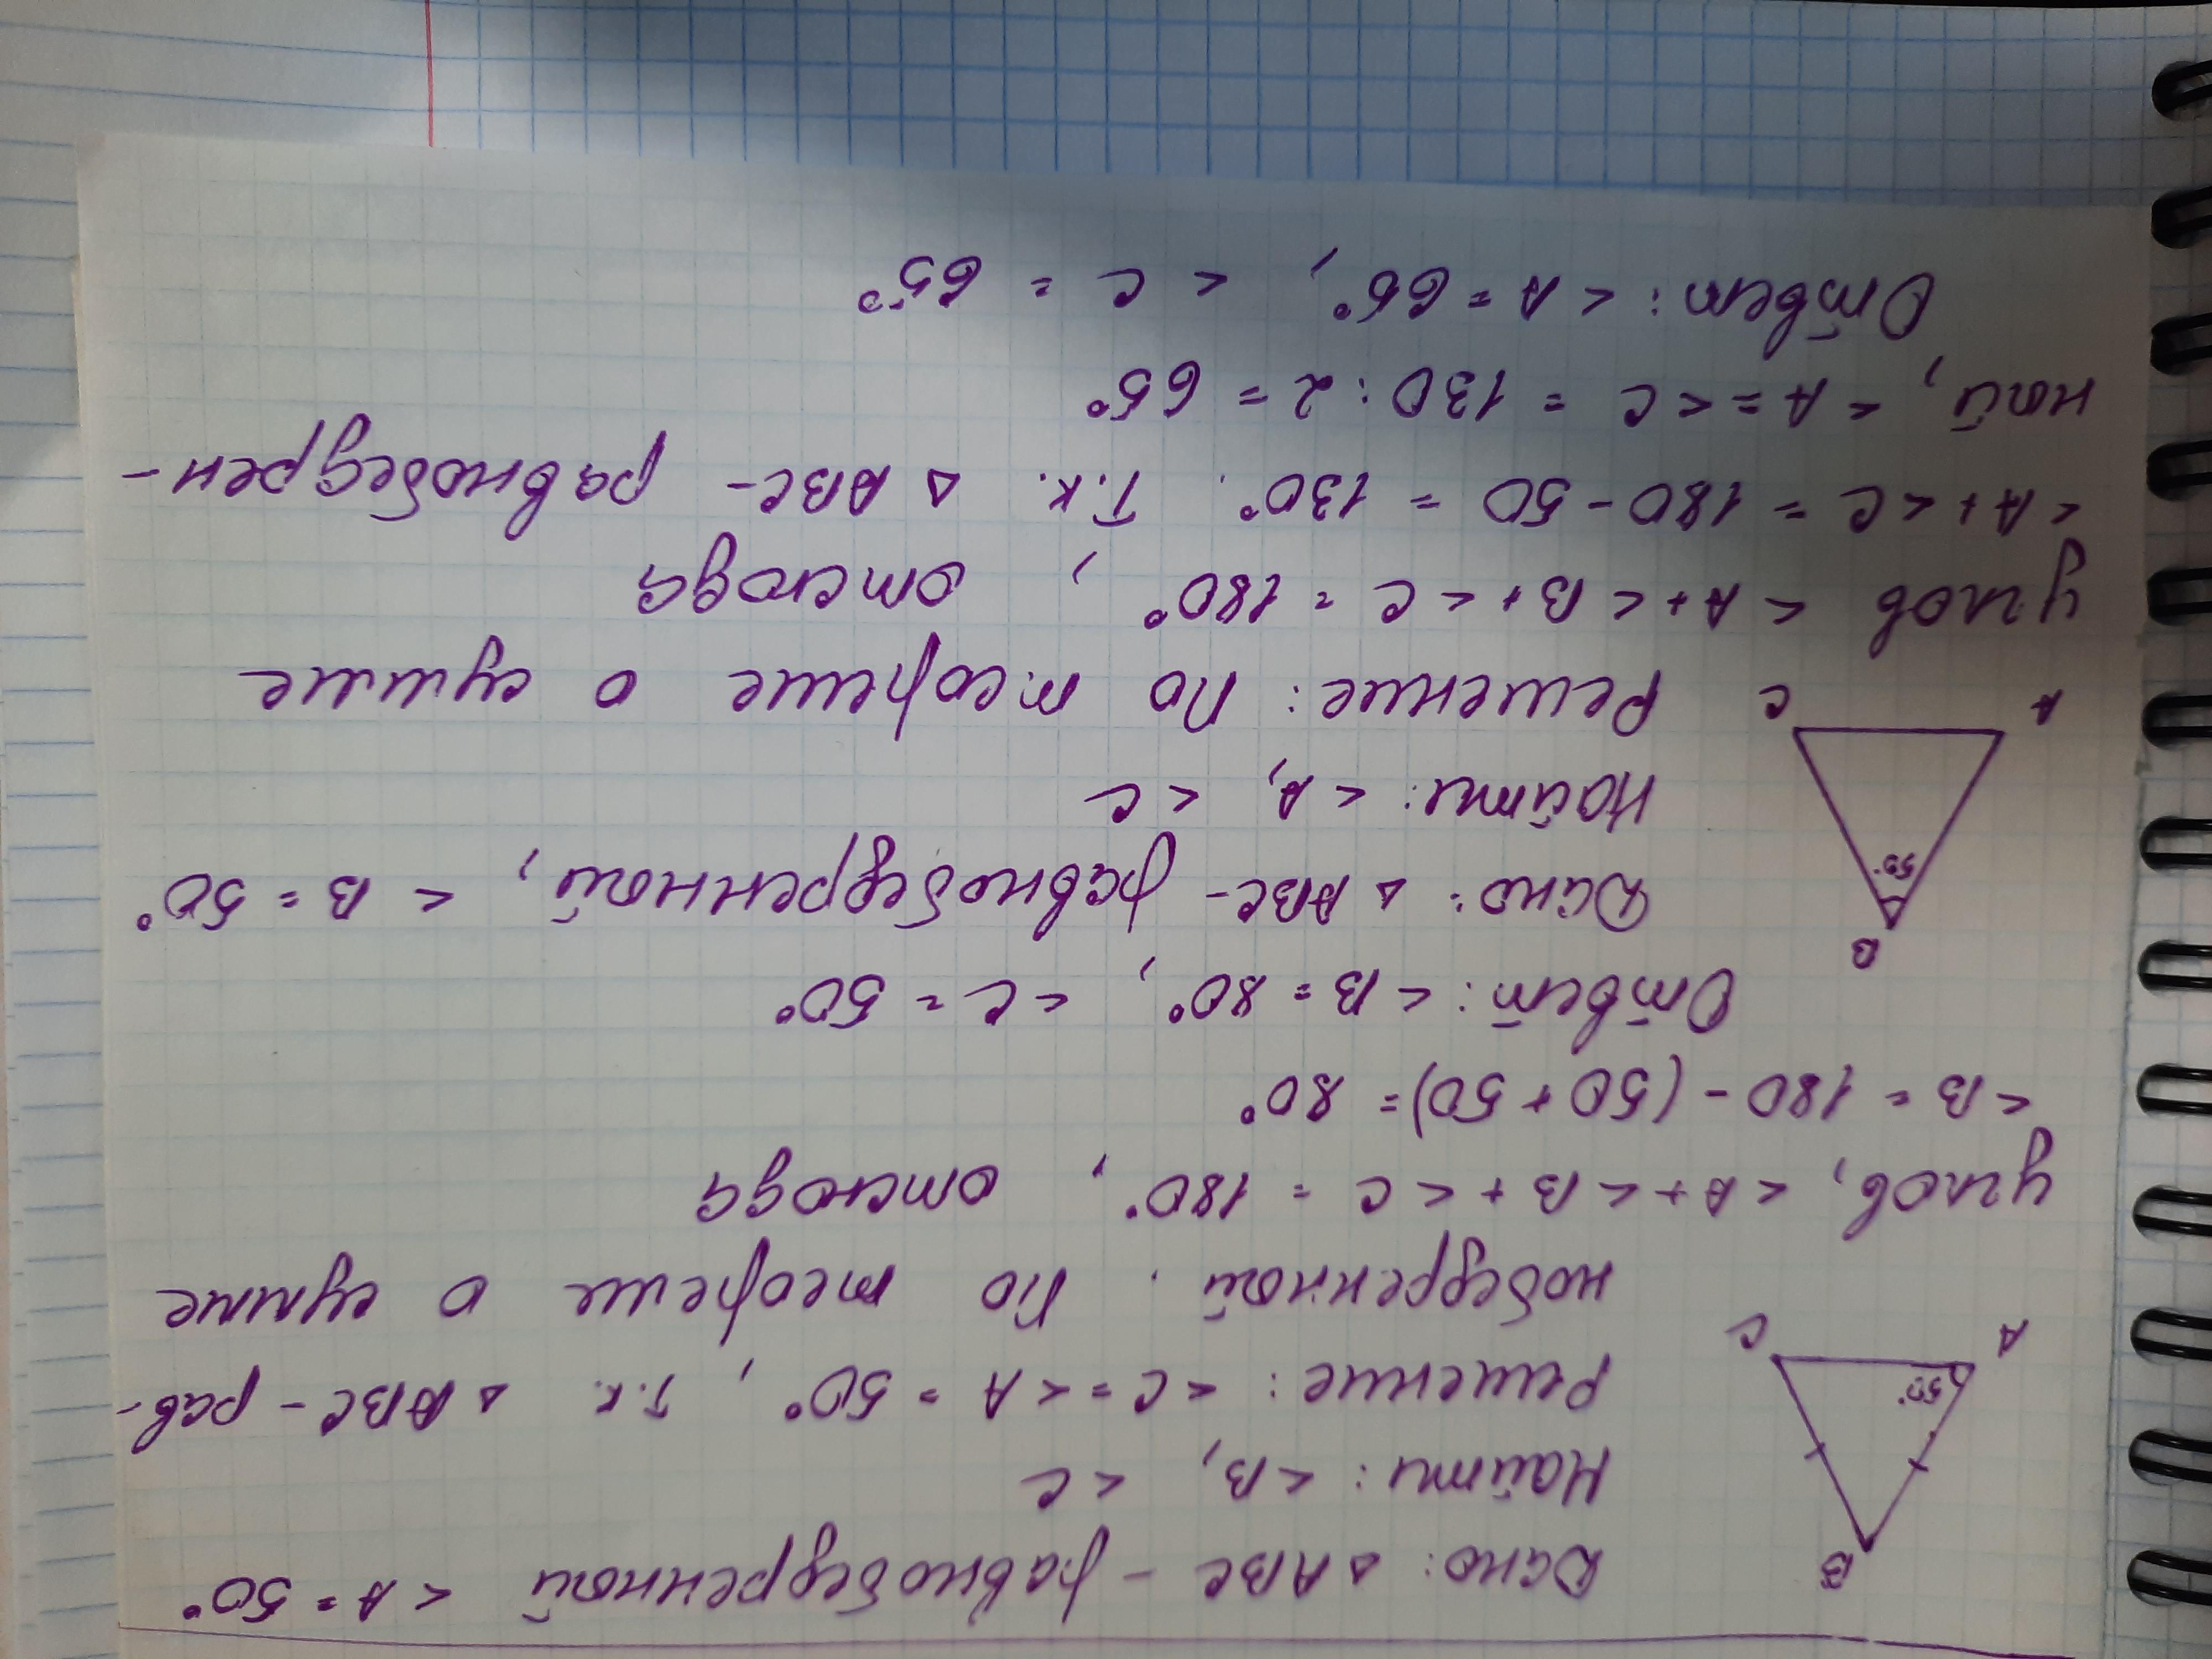 Дано: △ ABC - равнобедренной < A = 50°
Найти: < B, < C
Решение: < C = < A = 50°, т.к. △ ABC - рав-
нобедренной. По теореме о сумме
углов, < A + < B + < C = 180°, отсюда
< B = 180 - (50 + 50) = 80°
Ответ: < B = 80°, < C = 50°
B
50°
A C
B
50°
A C
Дано: △ ABC - равнобедренной, < B = 50°
Найти: < A, < C
Решение: По теореме о сумме
углов < A + < B + < C = 180°, отсюда
< A + < C = 180 - 50 = 130°. Т.к. △ ABC - равнобедрен-
ной, < A = < C = 130 : 2 = 65°
Ответ: < A = 65°, < C = 65°